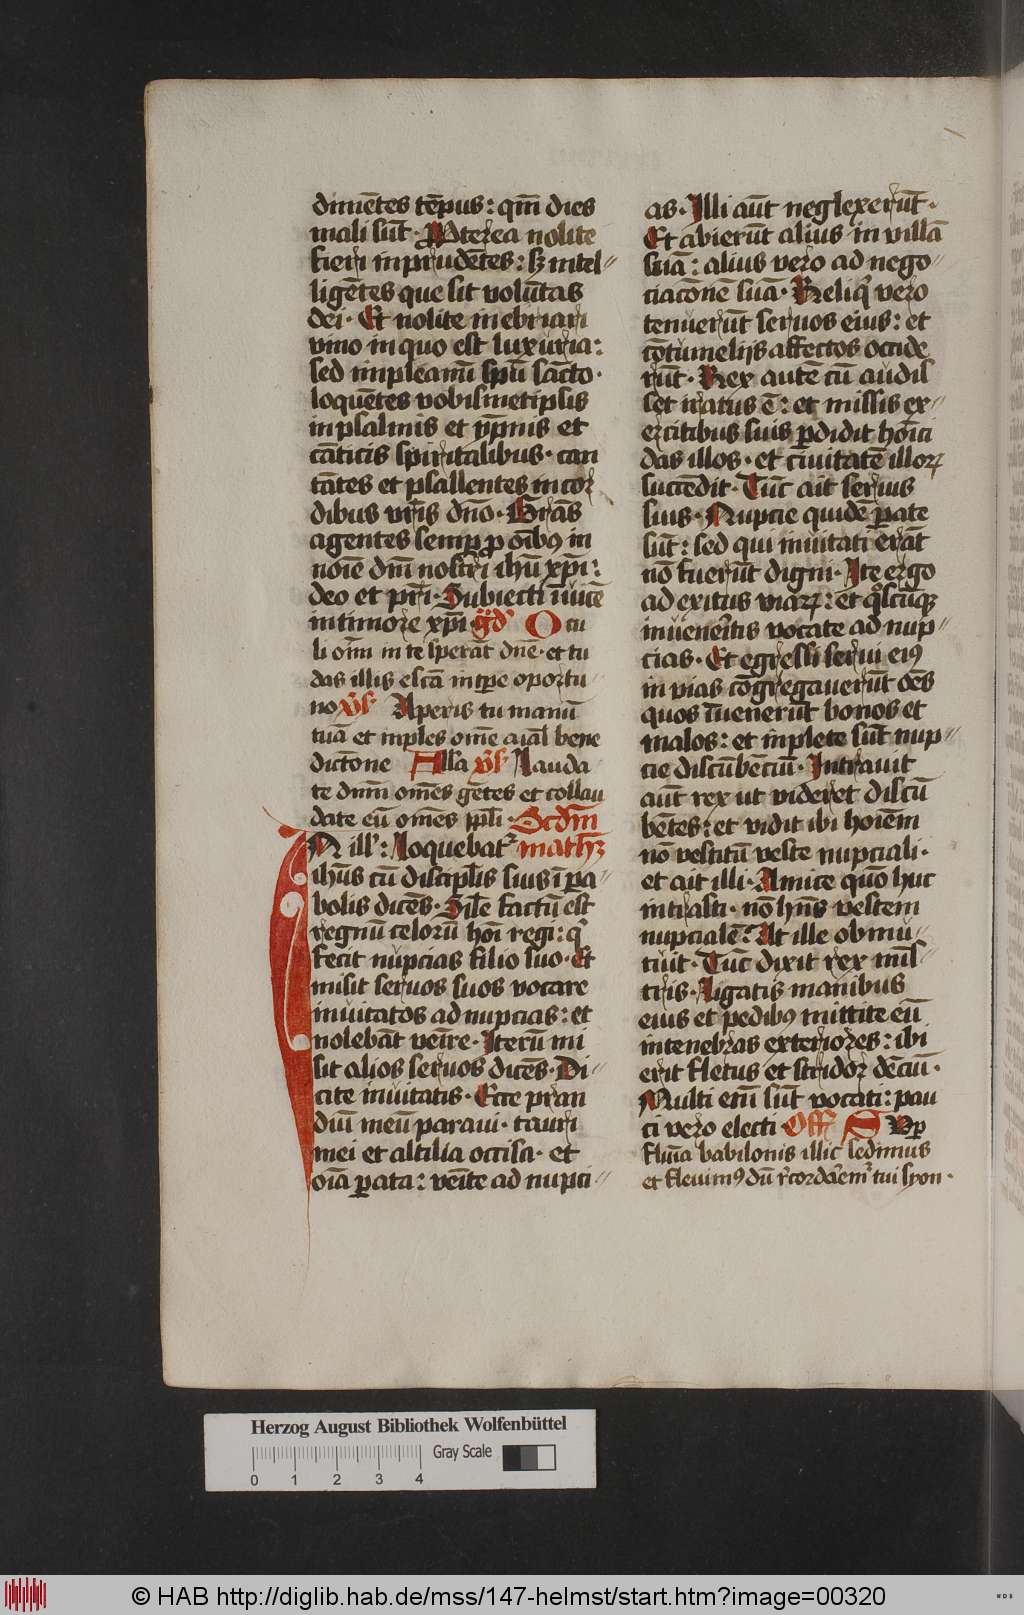 dimētes tēpus: qm̄ dies
mali sūt. Propterea nolite
fieri inprudētes: sꝫ intel-
ligētes que sit volūtas
dei. Et nolite inebriari
vino in quo est luxuria:
sed impleamī spū sācto.
loquētes vobismetipsis
in psalmis et ympnis et
cāticis spiritalibus. can
tātes et psallentes in cor
dibus vr̄is dn̄o. Gr̄as
agentes semp ꝓ oībꝰ in
noīe dn̄i nostri ihū xp̄i:
deo et pr̄i. Subiecti īuicē
in timore xp̄i. gd̄ Ocu
li oīm in te sperāt dn̄e. et tu
das illis escā in tpe oportu-
no v̄s Aperis tu manū
tuā et inples om̄e aīal bene
dictōne All'a v̄s Lauda
te dn̄m om̄es gētes et collau
date eū om̄es ppl̄i. Scd̄m
N ill': Loquebat' math'
ihūs cū discipl̄is suis ī pa-
bolis dicēs. Sile factū est
regnū celorū hoī regi: q
fecit nupcias filio suo. Et
misit seruos suos vocare
inuitatos ad nupcias: et
nolebāt veīre. Iterū mi
sit alios seruos dicēs. Di-
cite inuitatis. Ecce pran
diū meū paraui. tauri
mei et altilia occisa. et
oīa ꝑata: veīte ad nupci-
as. Illi aūt neglexerūt.
Et abierūt alius in villā
suā: alius vero ad nego-
ciacōnē suā. Reliq vero
tenuerūt seruos eius: et
cōtumelijs affectos occide
rūt. Rex autē cū audis
set iratus ē: et missis ex-
ercitibus suis ꝑdidit homīci
das illos. et ciuitatē illorꝝ
succēdit. Tūc ait seruis
suis. Nupcie quidē ꝑate
sūt: sed qui inuitati erāt
nō fuerūt digni. Ite ergo
ad exitus viarꝝ: et qoscūqꝫ
inueneritis vocate ad nup-
cias. Et egressi serui eiꝰ
in vias cōgregauerūt oēs
quos īuenerūt bonos et
malos: et inplete sūt nup-
cie discūbēciū. Intrauit
aūt rex ut videret discū
bētes: et vidit ibi hoīem
nō vestitū veste nupciali.
et ait illi. Amice quō huc
intrasti. nō hn̄s vestem
nupcialē? At ille obmu-
tuit. Tūc dixit rex mis-
tris. Ligatis manibus
eius et pedibꝰ mittite eū
in tenebras exteriores: ibi
erit fletus et stridor dēciū.
Multi enī sūt vocati: pau
ci vero electi. Off Sup
flūia babilonis illic sedimus
et fleuimꝰ dū recordarem' tui syon.
Herzog August Bibliothek Wolfenbüttel
Gray Scale
0 1 2 3 4
© HAB http://diglib.hab.de/mss/147-helmst/start.htm?image=00320